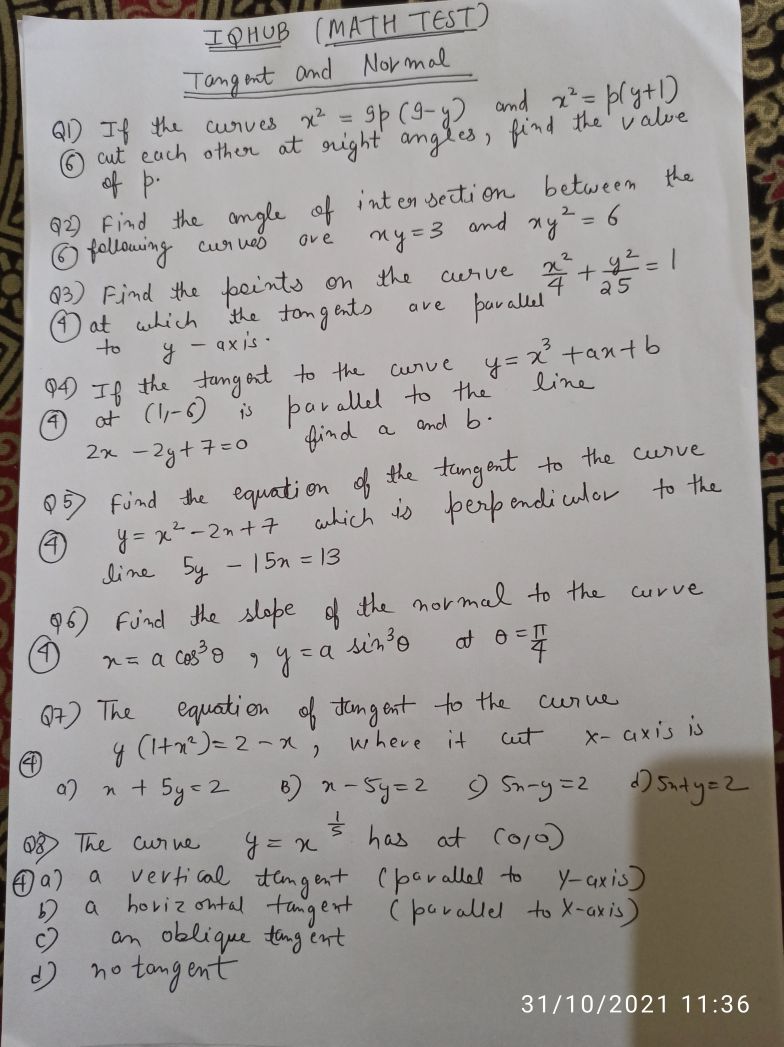 IQHUB (MATH TEST)
Tangent and Normal
Q1) If the curves x² = 9p (9-y) and x² = p(y+1)
⑥ cut each other at right angles, find the value
of p.
Q2) Find the angle of intersection between the
⑥ following curves are xy = 3 and xy² = 6
Q3) Find the points on the curve x²/4 + y²/25 = 1
④ at which the tangents are parallel
to y - axis.
Q4) If the tangent to the curve y = x³ + ax + b
④ at (1,-6) is parallel to the line
2x - 2y + 7 = 0 find a and b.
Q5) Find the equation of the tangent to the curve
④ y = x² - 2x + 7 which is perpendicular to the
line 5y - 15x = 13
Q6) Find the slope of the normal to the curve
④ x = a cos³θ , y = a sin³θ at θ = π/4
Q7) The equation of tangent to the curve
④ y (1+x²) = 2 - x , where it cut x-axis is
a) x + 5y = 2 B) x - 5y = 2 c) 5x - y = 2 d) 5x + y = 2
Q8) The curve y = x^(1/5) has at (0,0)
④ a) a vertical tangent (parallel to Y-axis)
b) a horizontal tangent (parallel to X-axis)
c) an oblique tangent
d) no tangent
31/10/2021 11:36